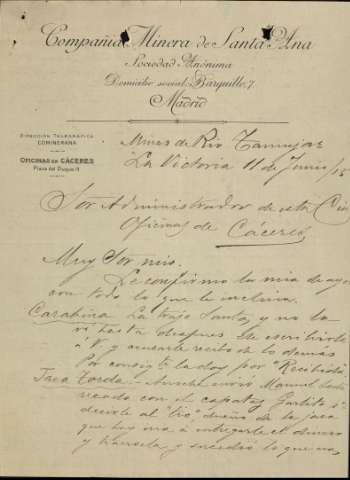 Compañía Minera de Santa Ana
Sociedad Anónima
Domicilio social: Barquillo, 7
Madrid
DIRECCIÓN TELEGRÁFICA
COMINERANA
OFICINAS DE CÁCERES
Plaza del Duque 11
Minas de Rio Tamujas
La Victoria 11 de Junio/15
Sor Administrador de esta Cia
Oficinas de Cáceres
Muy Sor mio.
Le confirmo la mia de ayer
con todo lo que le incluia.
Carabina La trajo Santos, y no la
vi hasta despues de escribirle
à V. y acusarle recibo de lo demás
Por consigte la doy por "Recibida"
Jaca Torda - Anoche envié Manuel
recado con el capataz
decirle al "tio" dueño de la jaca
que hoy iria à entregarle el dinero
y traersela, y sucedió lo que